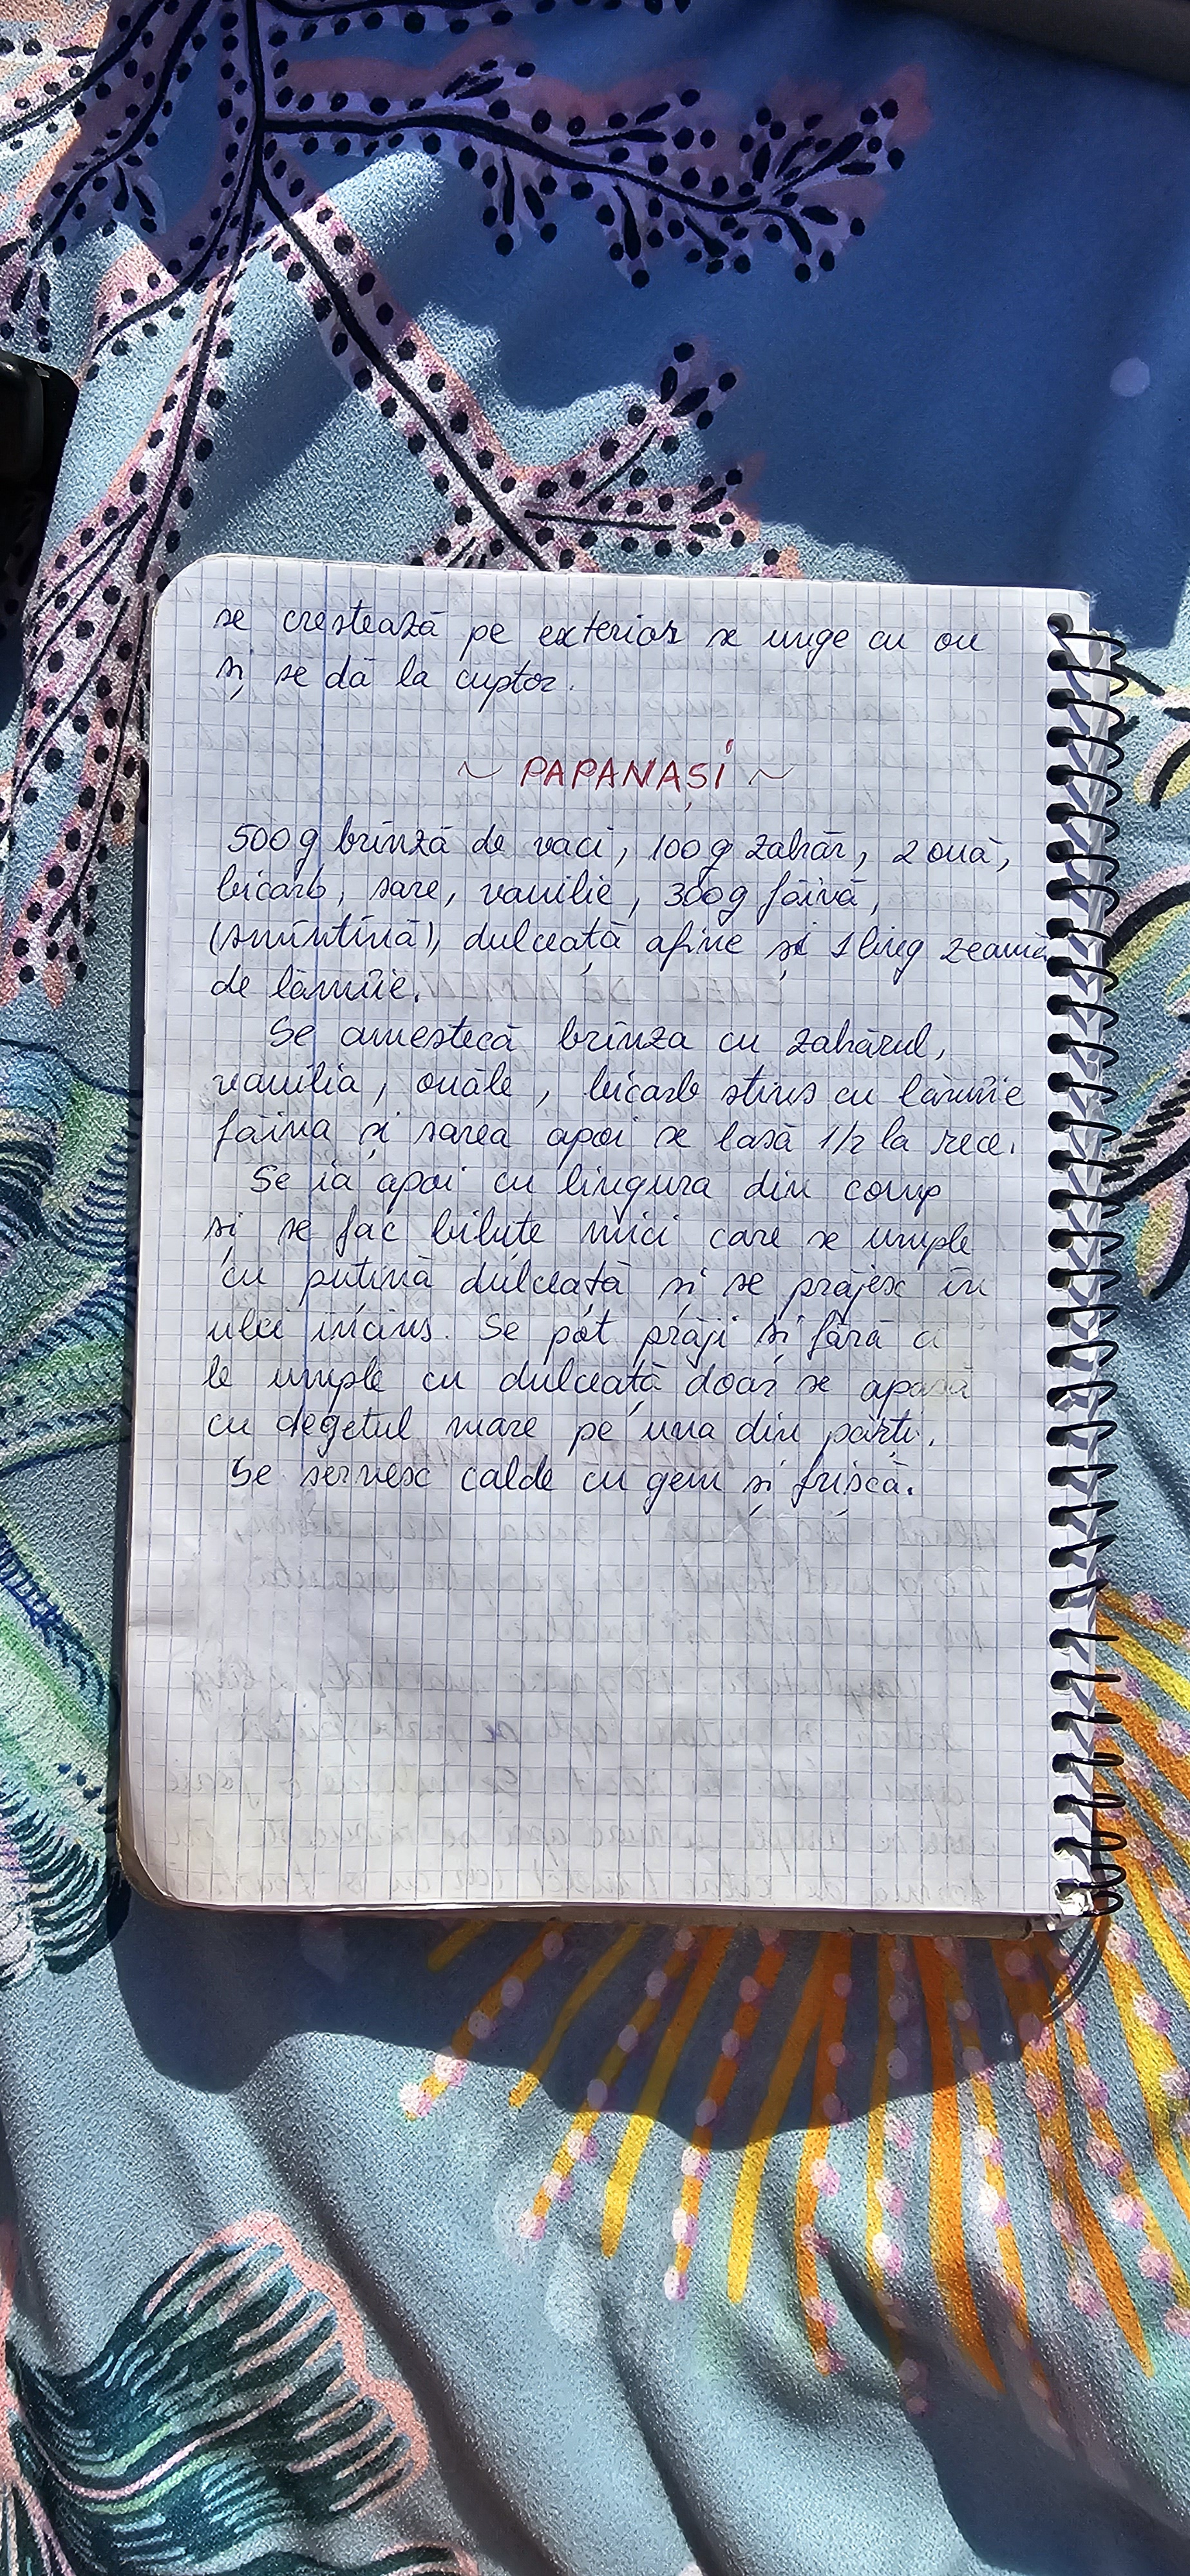 se crestează pe exterior se unge cu ou
și se dă la cuptor.
~ PAPANAȘI ~
500g brînză de vaci, 100g zahăr, 2 ouă,
bicarb, sare, vanilie, 300g făină,
(smîntînă), dulceață afine și 1 ling zeamă
de lămîie.
Se amestecă brînza cu zahărul,
vanilia, ouăle, bicarb stins cu lămîie
făina și sarea apoi se lasă 1/2 la rece.
Se ia apoi cu lingura din comp
și se fac biluțe mici care se umple
cu puțină dulceață și se prăjesc în
ulei incins. Se pot prăji și fără a
le umple cu dulceață doar se apasă
cu degetul mare pe una din părți.
Se servesc calde cu gem și frișcă.